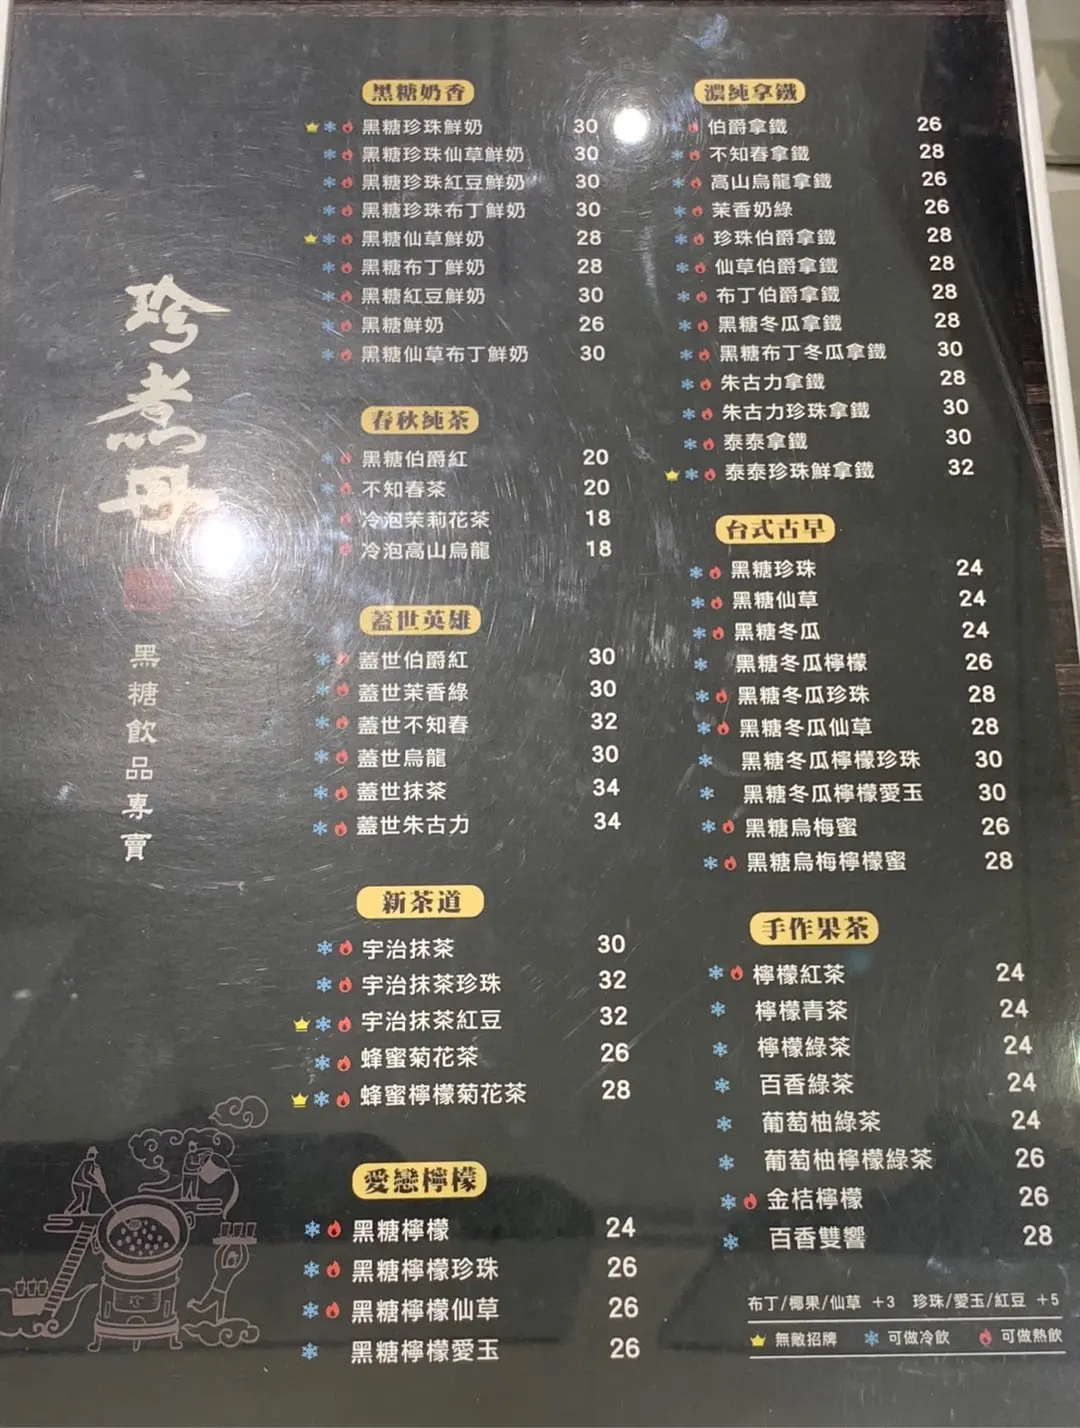 珍煮丹
黑糖飲品專賣
黑糖奶香
黑糖珍珠鮮奶 30
黑糖珍珠仙草鮮奶 30
黑糖珍珠紅豆鮮奶 30
黑糖珍珠布丁鮮奶 30
黑糖仙草鮮奶 28
黑糖布丁鮮奶 28
黑糖紅豆鮮奶 30
黑糖鮮奶 26
黑糖仙草布丁鮮奶 30
春秋純茶
黑糖伯爵紅 20
不知春茶 20
冷泡茉莉花茶 18
冷泡高山烏龍 18
蓋世英雄
蓋世伯爵紅 30
蓋世茉香綠 30
蓋世不知春 32
蓋世烏龍 30
蓋世抹茶 34
蓋世朱古力 34
新茶道
宇治抹茶 30
宇治抹茶珍珠 32
宇治抹茶紅豆 32
蜂蜜菊花茶 26
蜂蜜檸檬菊花茶 28
愛戀檸檬
黑糖檸檬 24
黑糖檸檬珍珠 26
黑糖檸檬仙草 26
黑糖檸檬愛玉 26
濃純拿鐵
伯爵拿鐵 26
不知春拿鐵 28
高山烏龍拿鐵 26
茉香奶綠 26
珍珠伯爵拿鐵 28
仙草伯爵拿鐵 28
布丁伯爵拿鐵 28
黑糖冬瓜拿鐵 28
黑糖布丁冬瓜拿鐵 30
朱古力拿鐵 28
朱古力珍珠拿鐵 30
泰泰拿鐵 30
泰泰珍珠鮮拿鐵 32
台式古早
黑糖珍珠 24
黑糖仙草 24
黑糖冬瓜 24
黑糖冬瓜檸檬 26
黑糖冬瓜珍珠 28
黑糖冬瓜仙草 28
黑糖冬瓜檸檬珍珠 30
黑糖冬瓜檸檬愛玉 30
黑糖烏梅蜜 26
黑糖烏梅檸檬蜜 28
手作果茶
檸檬紅茶 24
檸檬青茶 24
檸檬綠茶 24
百香綠茶 24
葡萄柚綠茶 24
葡萄柚檸檬綠茶 26
金桔檸檬 26
百香雙響 28
布丁/椰果/仙草 +3 珍珠/愛玉/紅豆 +5
無敵招牌 可做冷飲 可做熱飲